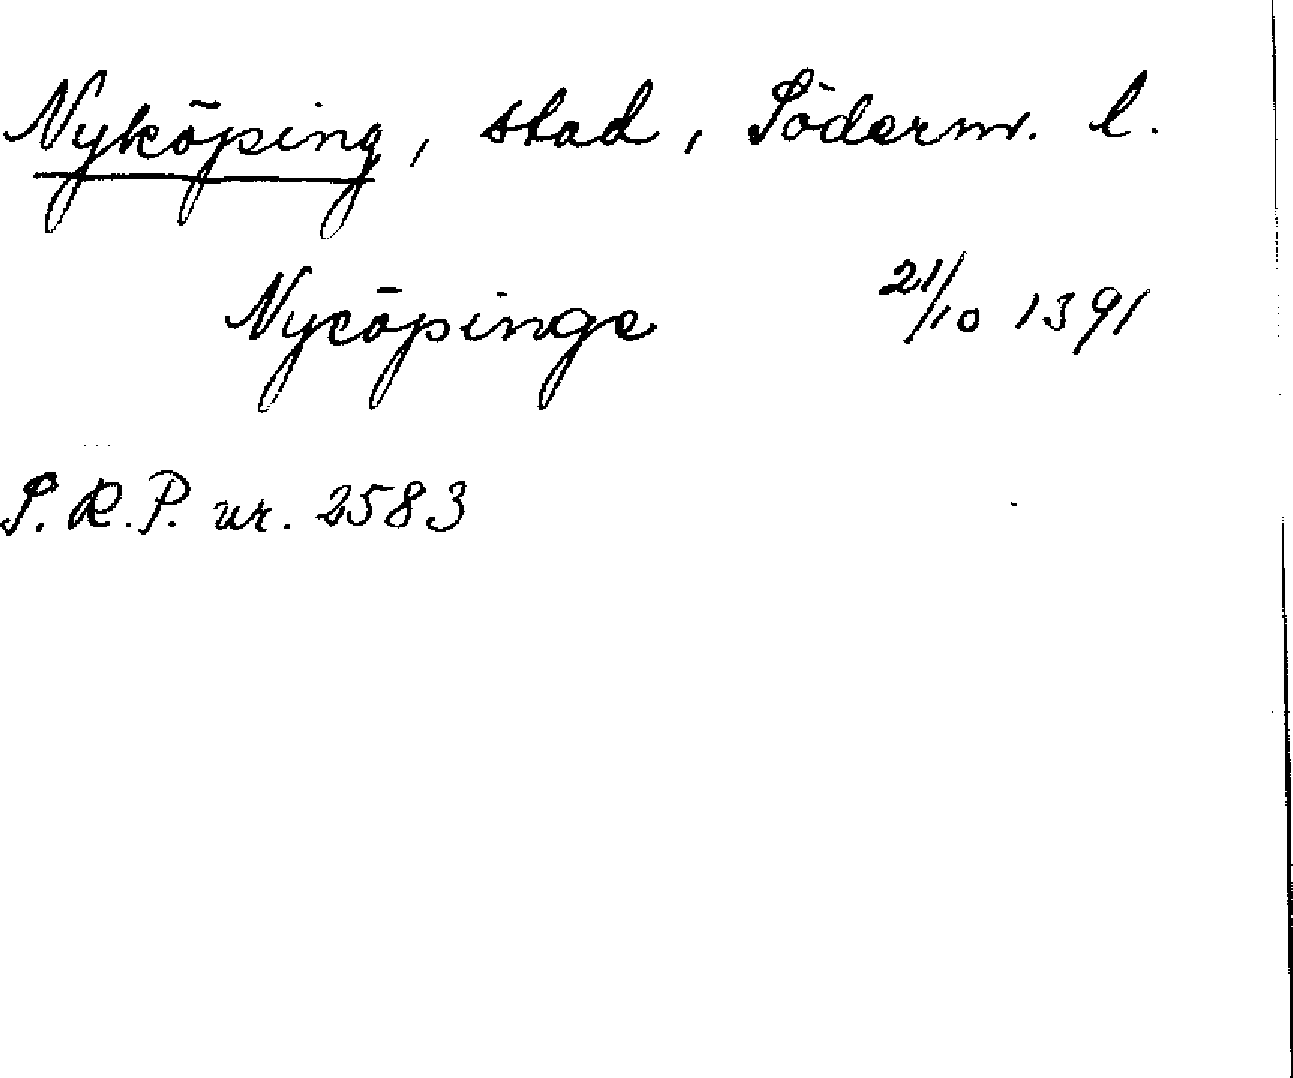 Nyköping, stad, Söderm. l.
Nycöpinge 21/10 1391
S.R.P. nr. 2583